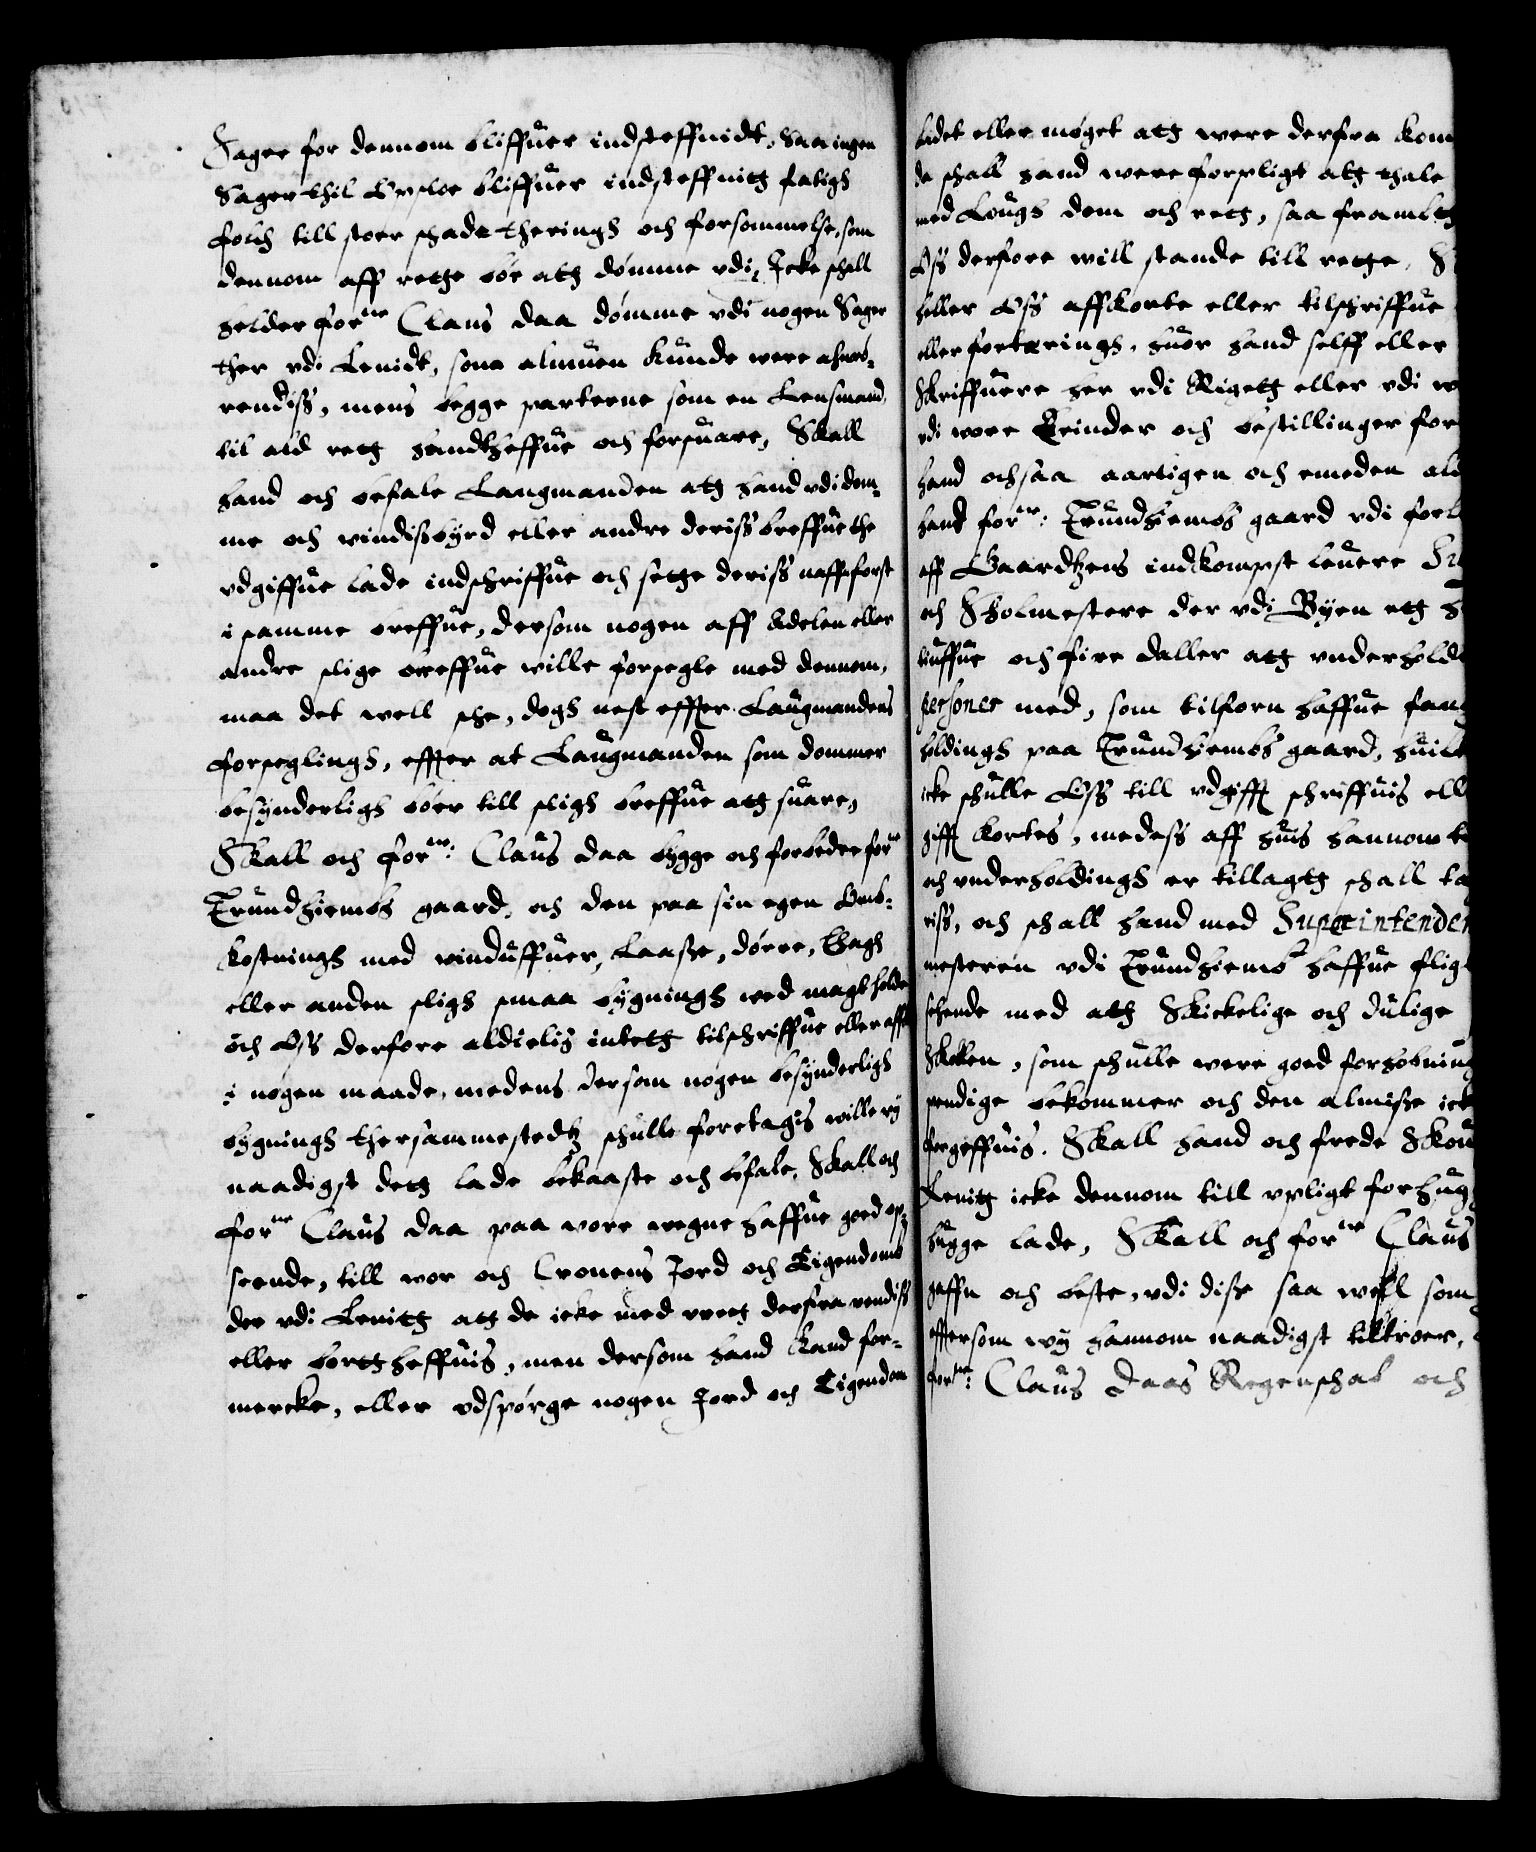 Sager for dennom bliffuer indsteffnidt, Saa ingen
Sager thil Opsloe bliffuer indsteffnitt fatigh
folch till stoer schade theringh och forsømmelse, som
dennom aff rette bør att dømme vdi, Icke schall
heller forne Claus daa dømme vdi nogen Sager
ther vdi Lenidt, som almuen kunde were
rendiss, mens begge parterne som en Lensmand
til ald rett handtheffue och forsuare, Skall
hand och befale Laugmanden att hand vdi dom-
me och vindissbyrd eller andre deriss breffue the
vdgiffue lade indschriffue och sette deriss naffn forst
i samme breffue, dersom nogen aff Adelen eller
andre slige breffue wille forsegle med dennom,
maa det well sche, dogh nest effter Laugmandens
forseglingh, effter at Laugmanden som dommer
besynderligh bøer till sligh breffue att suare,
Skall och forne: Claus daa bygge och forbedre forne
Trundhiembs gaard, och den paa sin egen Omb-
kostningh med vinduffuer, Laasse, dørre, Thagh
eller anden sligh smaa bygningh wed magt holde
och Oss derfore aldielis intett tilschriffue eller affk
i nogen maade, medens dersom nogen besynderligh
bygningh thersammestedtz schulle foretagis wille wy
naadigst dett lade bekaaste och befale, Skall och
forne Claus daa paa vore wegne haffue goed op-
seende, till wor och Cronens Jord och Eigendomb
der vdi Lenitt att de icke med wrett derfra vendiss
eller bortt heffuis, men dersom hand kand for-
mercke, eller vdspørge nogen Jord och Eigendom
lidet eller møget att were derfra kom
da schall hand were forpligt att thale
med Lough dom och rett, saa frambt
Oss derfore will stande till rette, S
heller Oss affkorte eller tilschriffue
eller forteringh, huor hand selff eller
Skriffuere her vdi Rigett eller vdi
vdi wore Erinder och bestillinger for
hand ochsaa aarligen och emeden
hand forne: Trundhiembs gaard vdi forl
aff Gaardtzens indkompst leuere Su
och Skolmestere der vdi Byen ett h
tiuffue och fire daller att vnderhold
personer med, som tilforn haffue fan
holdingh paa Trundhiembs gaard, huilc
icke schulle Oss till vdgifft schriffuis ell
gifft kortes, medess aff huis hannom
och vnderholdingh er tillagtt schall ta
riss, och schall hand med Superintenden
mesteren vdi Trundhiemb haffue flig
seende med att Skickelige och dulige
Skollen, som schulle were goed forhobning
pendige bekommer och den almisse ick
forgeffuis. Skall hand och frede Skou
Lenitt icke dennom till vpligt forhug
hugge lade, Skall och forne Claus
gaffn och beste, vdi disse saa well som
effter som wy hannom naadigst tiltroer,
forne: Claus daas Regenschab och